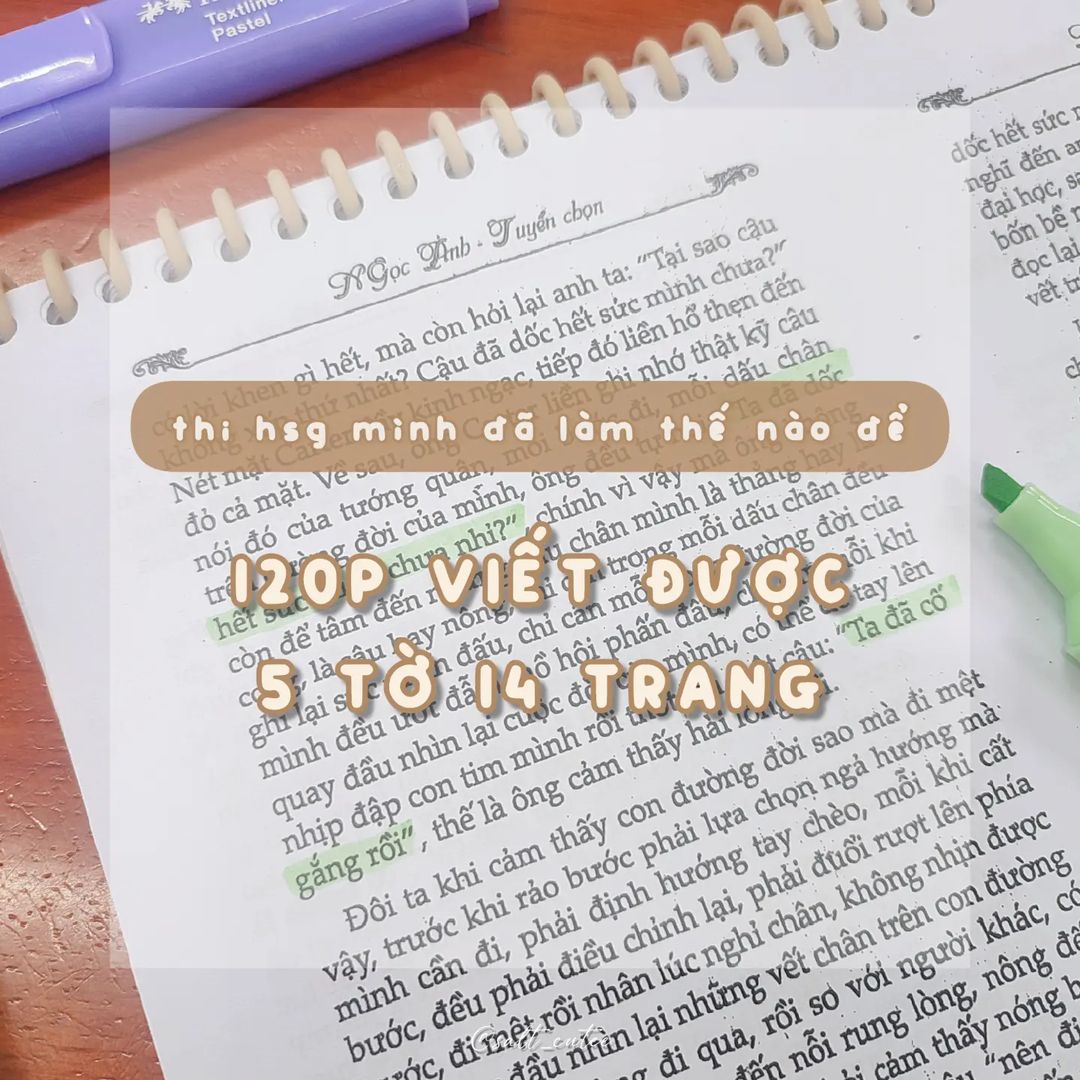 Textliner
Pastel
Ngọc Ánh - Tuyển chọn
khen gì hết, mà còn hỏi lại anh ta: “Tại sao cậu
không thứ nhất? Cậu đã dốc hết sức mình chưa?”
Nét mặt kinh ngạc, tiếp đó liền hổ thẹn đến
đỏ cả mặt. Về sau, ông liền ghi nhớ thật kỹ câu
nói đó của tướng quân, mỗi đi, mỗi dấu chân
đời của mình, ông đều “Ta đã dốc
hết sức chưa nhỉ?”, chính vì vậy mà ông không
còn để tâm đến chân mình là thẳng hay
là sâu hay nông, trong mỗi dấu chân đều
ghi lại đấu, chỉ cần đường đời của
mình đều ướt đẫm mồ hôi phấn đấu, mỗi khi
quay đầu nhìn lại cuộc mình, có thể tay lên
nhịp đập con tim mình rồi câu: “Ta đã cố
gắng rồi”, thế là ông cảm thấy hài lòng
Đôi ta khi cảm thấy con đường đời sao mà đi mệt
vậy, trước khi rảo bước phải lựa chọn ngả hướng mà
mình cần đi, phải định hướng tay chèo, mỗi khi cất
bước, đều phải điều chỉnh lại, phải đuổi rượt lên phía
đi mệt rồi nhân lúc nghỉ chân, không nhìn được
đầu nhìn lại những vết chân trên con đường
đi qua, rồi so với người khác, có
đến nỗi rung lòng, nông
cảm thấy nóng
“nên đi
dốc hết sức
nghĩ đến
đại học,
bốn bề
đọc lại
vết
thi hsg mình đã làm thế nào để
120P VIẾT ĐƯỢC
5 TỜ 14 TRANG